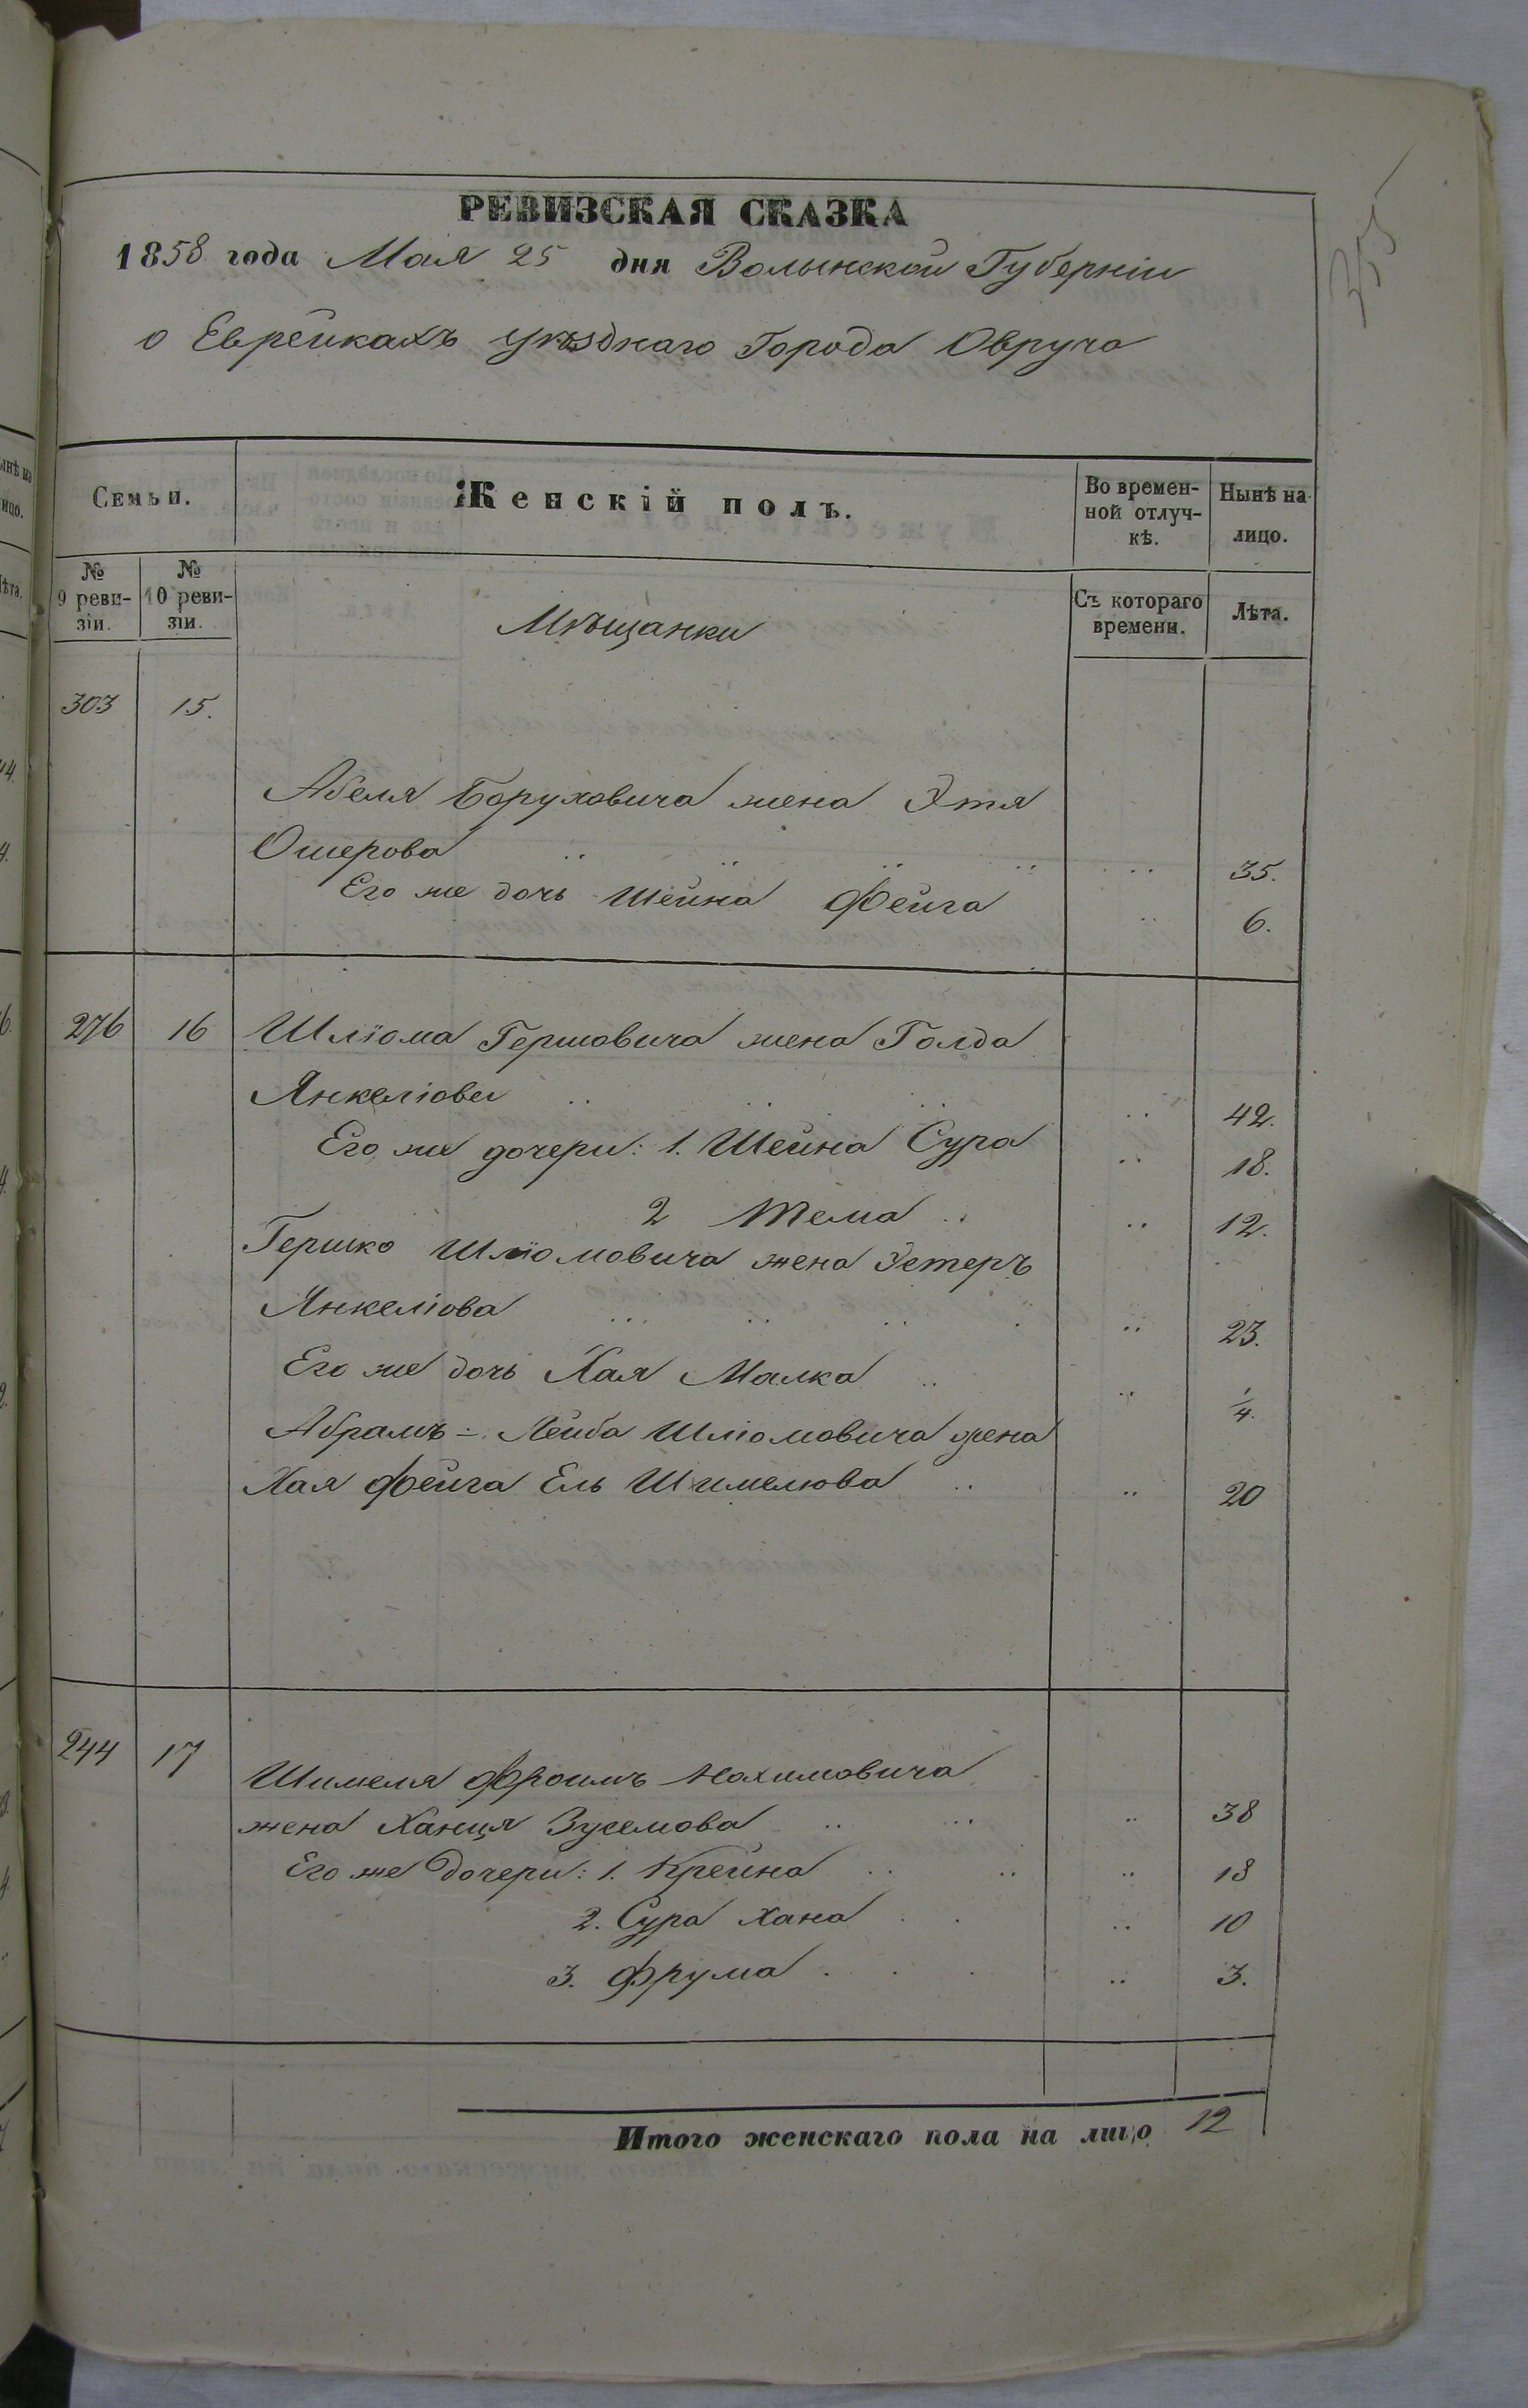 РЕВИЗСКАЯ СКАЗКА
1858 года Мая 25 дня Волынской Губерніи
о Еврейкахъ уѣзднаго Города Овруча
Семьи.
Женскій полъ.
Во времен-
ной отлуч-
кѣ.
Нынѣ на
лицо.
№
9 реви-
зіи.
№
10 реви-
зіи.
Мѣщанки
Съ котораго
времени.
Лѣта.
303 15.
Абеля Боруховича жена Этя
Ошерова 35.
Его же дочь Шейна Фейга 6.
276 16 Шліома Гершовича жена Голда
Янкеліова 42.
Его же дочери: 1. Шейна Сура 18.
2 Тема 12.
Гершко Шліомовича жена Эстеръ
Янкеліова 23.
Его же дочь Хая Малка 1/4.
Абрамъ-Лейба Шліомовича жена
Хая Фейга Ель Шимелюва 20
244 17
Шимеля Фроимъ Нохимовича
жена Ханця Зуселова 38
Его же дочери: 1. Крейна 18
2. Сура Хана 10
3. Фрума 3.
Итого женскаго пола на лицо 12